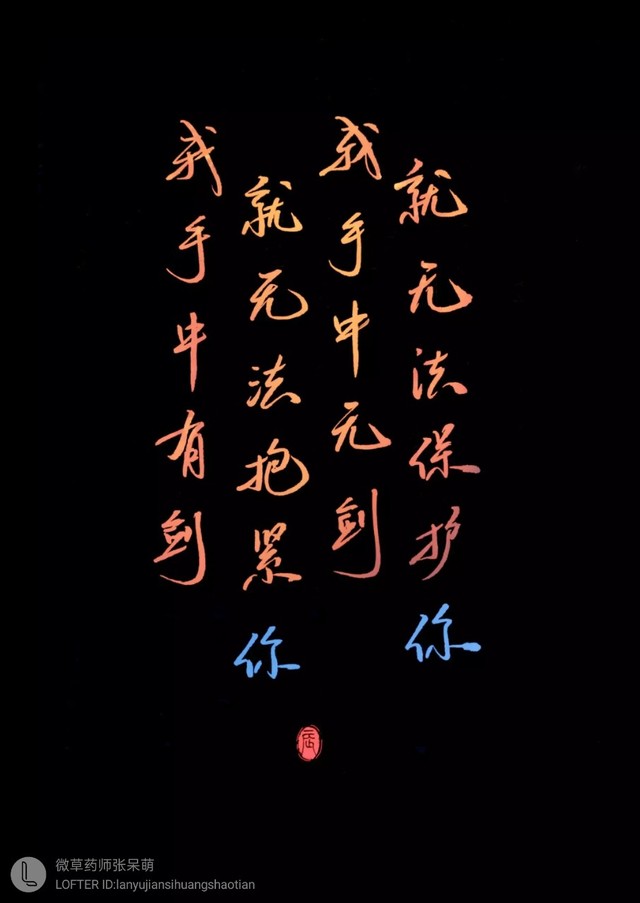 我手中有剑
就无法抱紧你
我手中无剑
就无法保护你
微草药师张呆萌
LOFTER ID:lanyujiansihuangshaotian